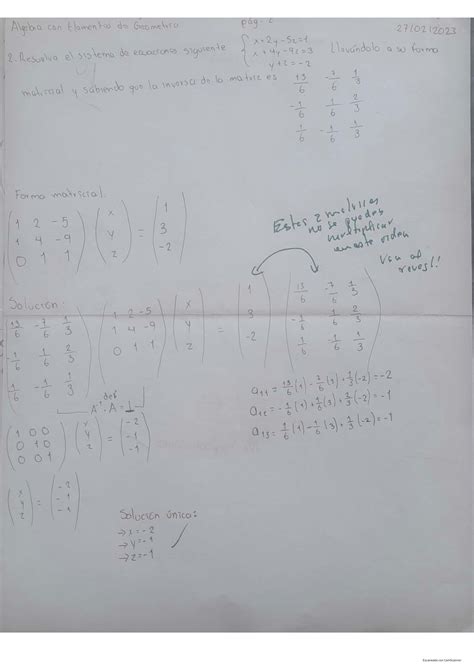 Algebra con Elementos de Geometría pág. 2 27/02/2023
2. Resuelva el sistema de ecuaciones siguiente { x+2y-5z=1 Llevándolo a su forma
x+4y-9z=3
y+z=-2
matricial y sabiendo que la inversa de la matriz es 13/6 -7/6 1/3
-1/6 1/6 2/3
1/6 -1/6 1/3
Forma matricial:
(1 2 -5) (x) (1)
(1 4 -9) (y) = (3)
(0 1 1) (z) (-2)
Estas 2 matrices
no se
multiplicar
en este orden
Van al
revés!!
Solución:
(13/6 -7/6 1/3) (1 2 -5) (x) (1) (13/6 -7/6 1/3)
(-1/6 1/6 2/3) (1 4 -9) (y) = (3) (-1/6 1/6 2/3)
(-1/6 -1/6 1/3) (0 1 1) (z) (-2) (1/6 -1/6 1/3)
def
A⁻¹·A=I
a11 = 13/6(1) -7/6(3) +1/3(-2) = -2
= -1/6(1)+1/6(3)+2/3(-2) = -1
a13 = 1/6(1)-1/6(3)+1/3(-2) = -1
(1 0 0) (x) (-2)
(0 1 0) (y) = (-1)
(0 0 1) (z) (-1)
(x) (-2)
(y) = (-1)
(z) (-1)
Solución única:
→ x=-2
→ y=-1
→ z=-1
Escaneado con CamScanner